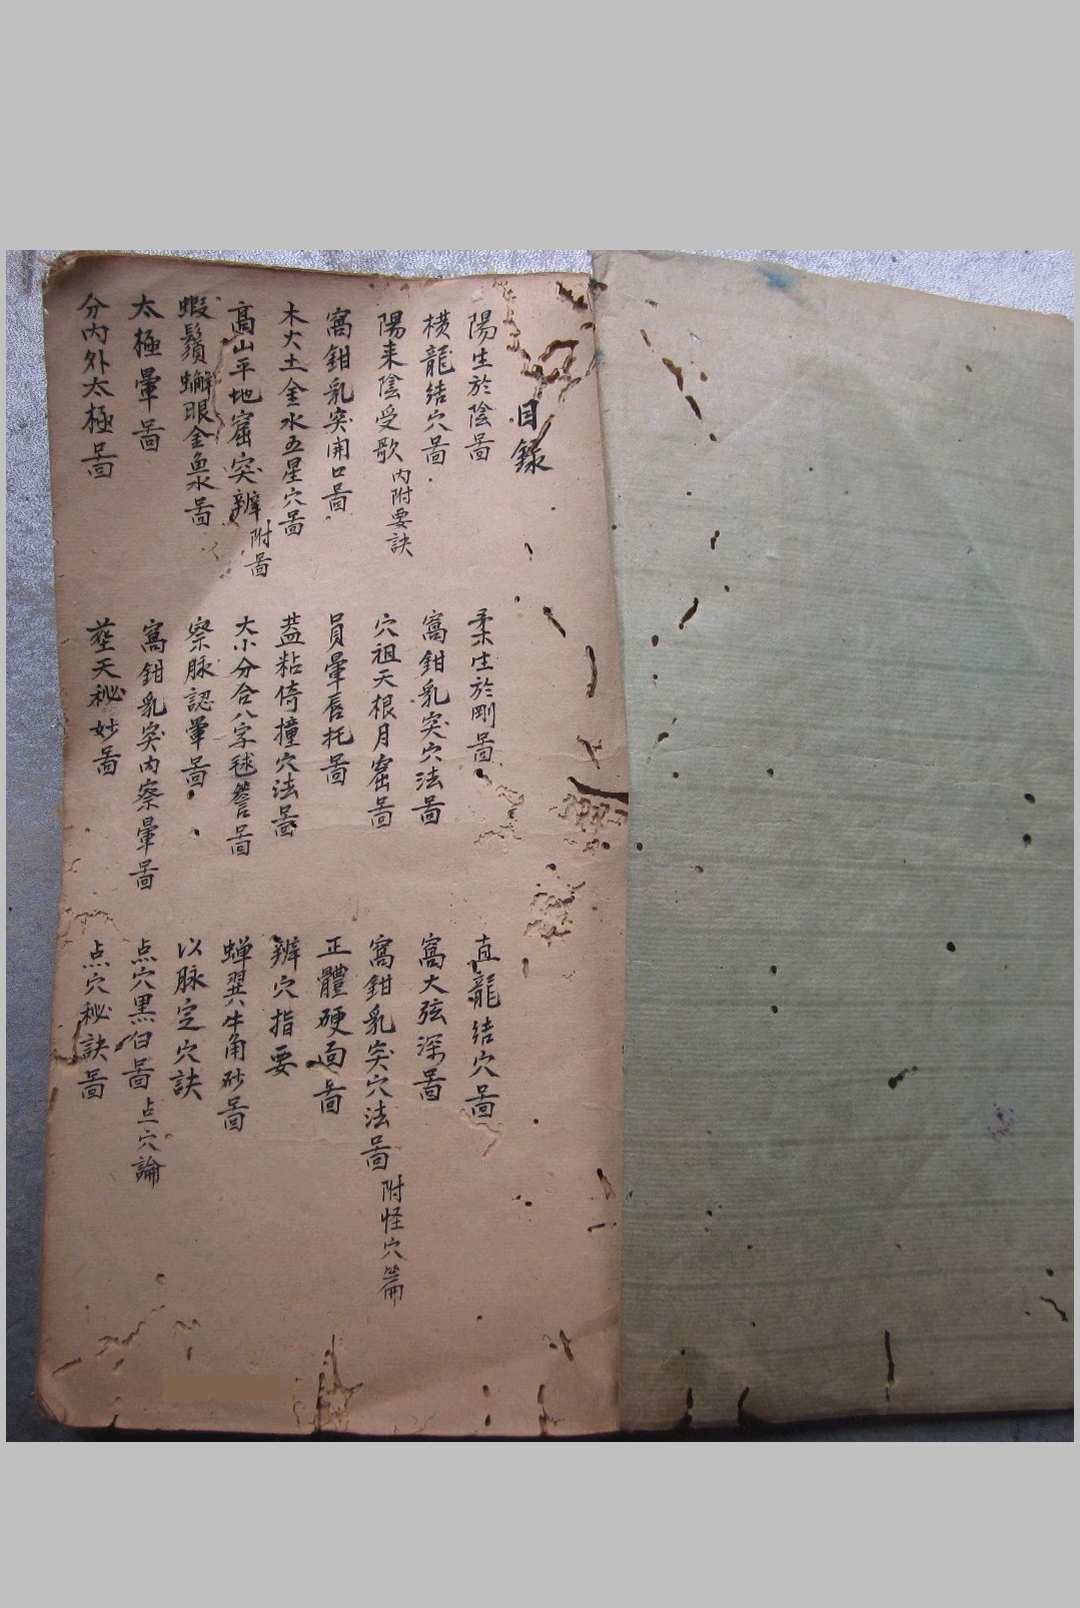 目錄
陽生於陰啚
柔生於剛啚
直龍結穴啚
橫龍結穴啚
窩鉗乳突穴法啚
窩大弦深啚
陽来陰受歌 内附要訣
穴祖天根月窟啚
窩鉗乳突穴法啚 附怪穴篇
窩鉗乳突開口啚
員暈唇托啚
正體硬面啚
木火土金水五星穴啚
盖粘倚撞穴法啚
辨穴指要
高山平地窟突辨 附啚
大小分合八字毬簷啚
蝉翼牛角砂啚
蝦鬚蠏眼金魚水啚
察脉認暈啚
以脉定穴訣
太極暈啚
窩鉗乳突内察暈啚
点穴黑白啚 点穴論
分内外太極啚
葬天秘妙啚
点穴秘訣啚